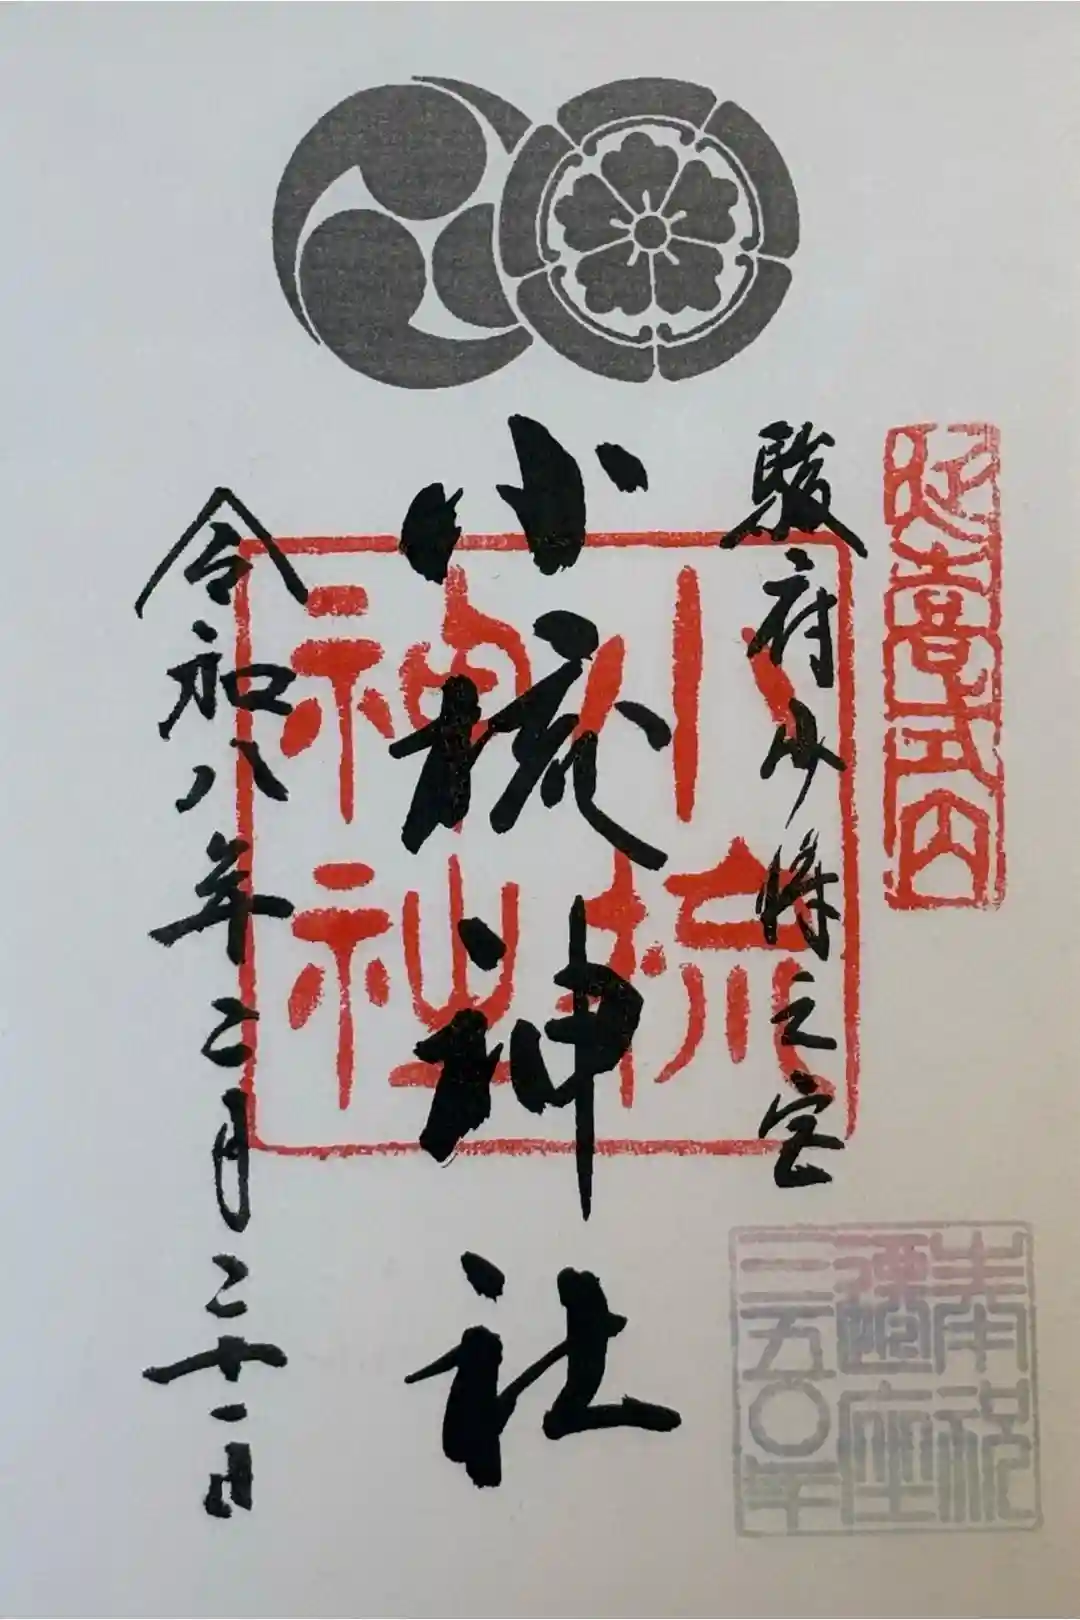 延喜式内
駿府少将之宮
小梳神社
小梳神社
令和八年二月二十一日
奉祝
遷座
三五〇年